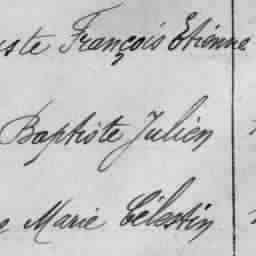 François Étienne
Baptiste Julien
Marie Célestin